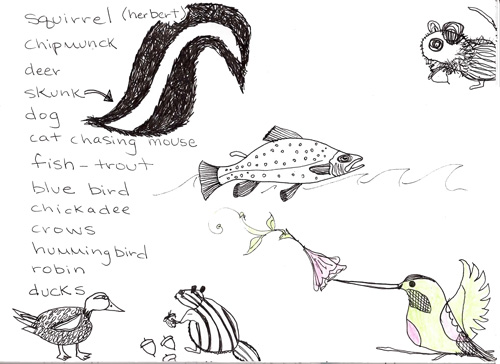 squirrel (herbert)
chipmunck
deer
skunk
dog
cat chasing mouse
fish - trout
blue bird
chickadee
crows
hummingbird
robin
ducks